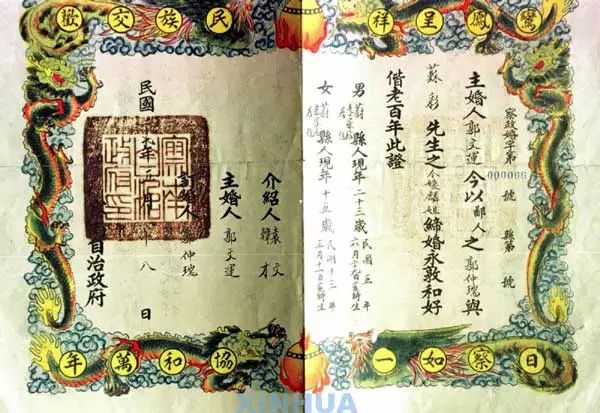 鸞鳳呈祥
民族交歡
察政婚字第 號 縣第 號
主婚人 郭文運 今以鄙人之 郭仲瑰 與
蘇彩 先生之令 姐 締婚永敦和好
偕老百年此證
男 蔚縣人現年二十三歲 民國五年 六月 生
女 蔚縣人現年十五歲 民國十三年 三月十一日 時生
介紹人 文 才
主婚人 郭文運
婚人 郭仲瑰
民國 年 月十八日
自治政府
日察如一
協和萬年
XINHUA